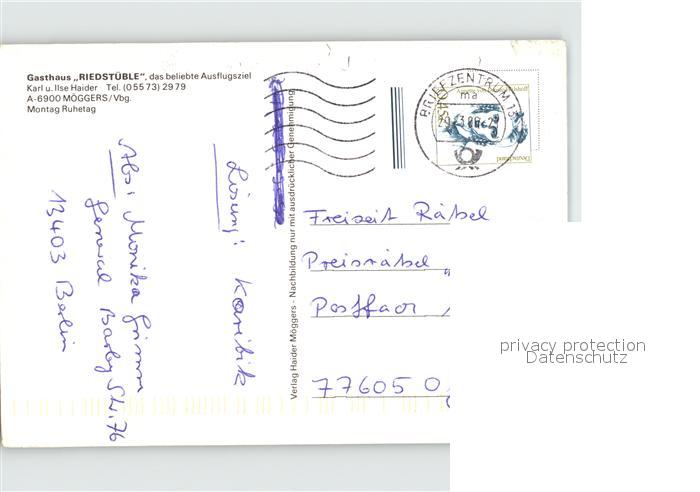 Gasthaus „RIEDSTÜBLE“, das beliebte Ausflugsziel
Karl u. Ilse Haider Tel. (05573) 2979
A-6900 MÖGGERS/Vbg.
Montag Ruhetag
Abs: Monika Grimm
General Barby Str. 76
13403 Berlin
Lösung: Karibik
Verlag Haider Möggers - Nachbildung nur mit ausdrücklicher Genehmigung
BRIEFZENTRUM 13
ma
Deutschland
Freizeit Rätsel
Preisrätsel
Postfach
77605 O
privacy protection
Datenschutz